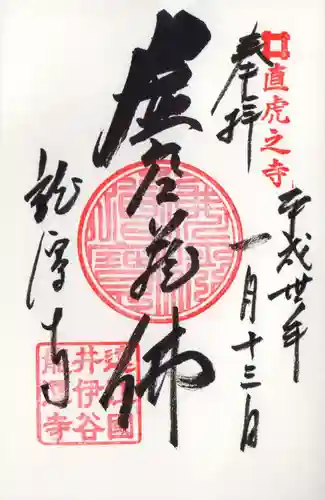 直虎之寺
奉拝
平成卅年
一月十三日
虚空蔵佛
龍潭寺
遠江國
井伊谷
龍潭寺